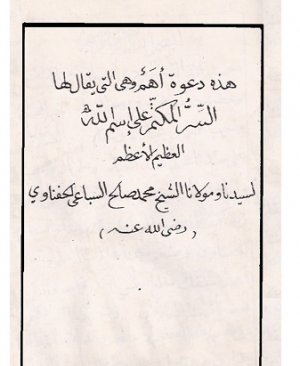 هذه دعوة أهم وهي التي يقال لها
السر المكتم على إسم الله
العظيم الأعظم
لسيدنا ومولانا الشيخ محمد صالح السباعي الحفناوي
(رضى الله عنه)